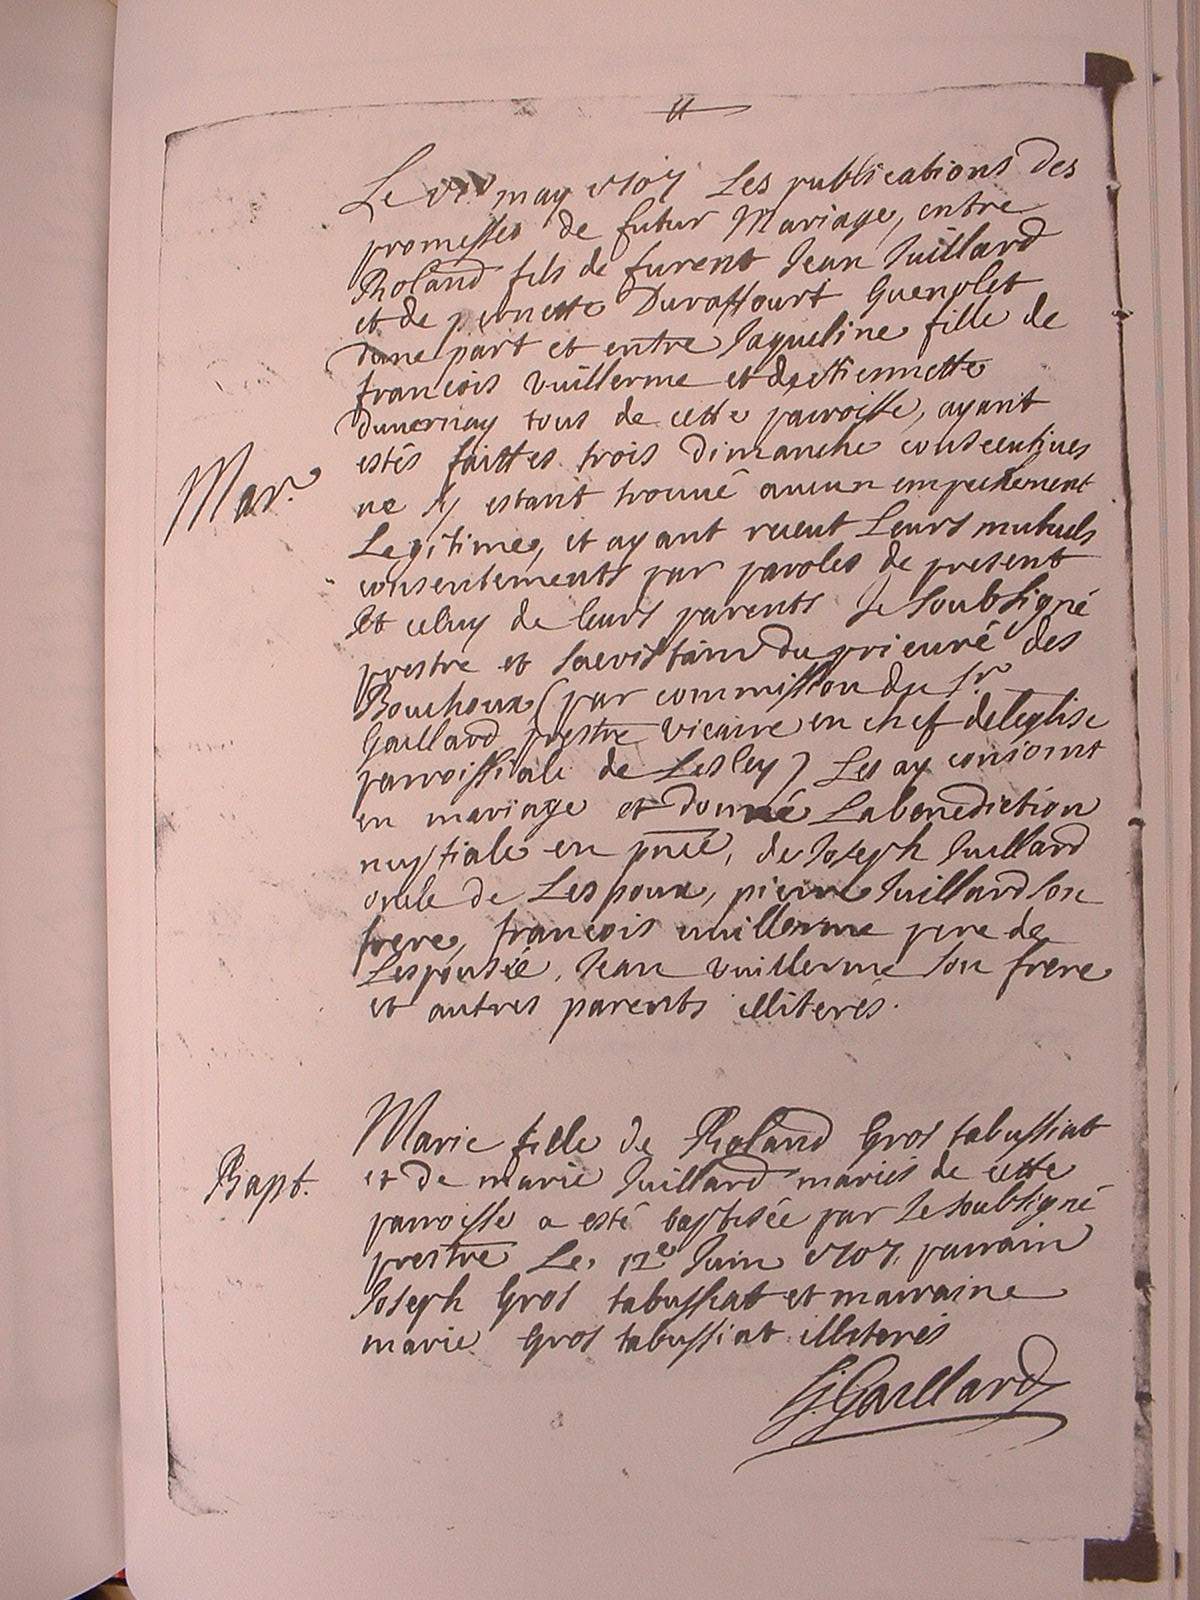 Le may 1707 Les publications des
promesses de futur Mariage, entre
Roland fils de furent Jean Juillard
et de pernette Duraffourt Guenolet
dune part et entre Jaqueline fille de
françois vuillerme et de etiennette
duuernay tous de cette parroisse, ayant
estés faittes trois dimanche consecutiues
ne sy estant trouué aucun empechement
Legitime, et ayant receut Leurs mutuels
consentements par paroles de present
Et celuy de leurs parents Je soubsigné
prestre et sacristain du prieuré des
Bouchoux (par commission du Sr
Gaillard prestre vicaire en chef de leglise
parroissiale de Lesley) Les ay conjoint
en mariage et donné La benediction
nuptiale en pnce, de Joseph Juillard
oncle de Lespoux, pierre Juillard son
frere, françois vuillerme pere de
Lespousée, Jean vuillerme son frere
et autres parents illiterés.
Mar.
Marie fille de Roland Gros tabussiat
et de marie Juillard mariés de cette
parroisse a esté baptisée par Je soubsigné
prestre Le 12e Juin 1707, parrain
Joseph Gros tabussiat et marraine
marie Gros tabussiat illiterés
Bapt.
G. Gaillard